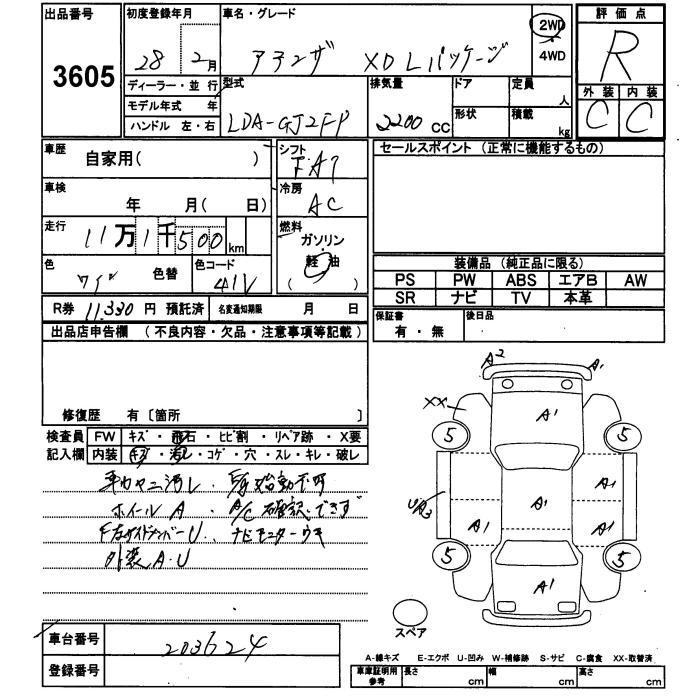 出品番号
3605
初度登録年月
28 2月
車名・グレード
アテンザ XD Lパッケージ
2WD
・
4WD
評価点
R
外装 内装
C C
ディーラー・並行
モデル年式 年
ハンドル 左・右
型式
LDA-GJ2FP
排気量
2200 cc
ドア
形状
定員
人
積載
kg
車歴
自家用( )
車検
年 月( 日)
走行
11万1千500 km
色
ワイン
色替
色コード
41V
シフト
FAT
冷房
AC
燃料
ガソリン
軽油
( )
セールスポイント (正常に機能するもの)
装備品 (純正品に限る)
PS PW ABS エアB AW
SR ナビ TV 本革
保証書
有・無
後日品
R券 11,330 円 預託済
名変通知期限 月 日
出品店申告欄 (不良内容・欠品・注意事項等記載)
修復歴 有〔箇所 〕
検査員 FW キズ・飛石・ヒビ割・リペア跡・X要
記入欄 内装 キズ・汚レ・コゲ・穴・スレ・キレ・破レ
車内ヤニ汚レ 始動不可
ホイールA A/C確認できず
F左サイドメンバーU ナビモニターウキ
外装A・U
A2 A1
A1
XX
5 5
A1
U/A3
A1 A1
A1
5 5
A1
スペア
車台番号
203624
登録番号
A-線キズ E-エクボ U-凹み W-補修跡 S-サビ C-腐食 XX-取替済
車庫証明用
参考
長さ cm
幅 cm
高さ cm